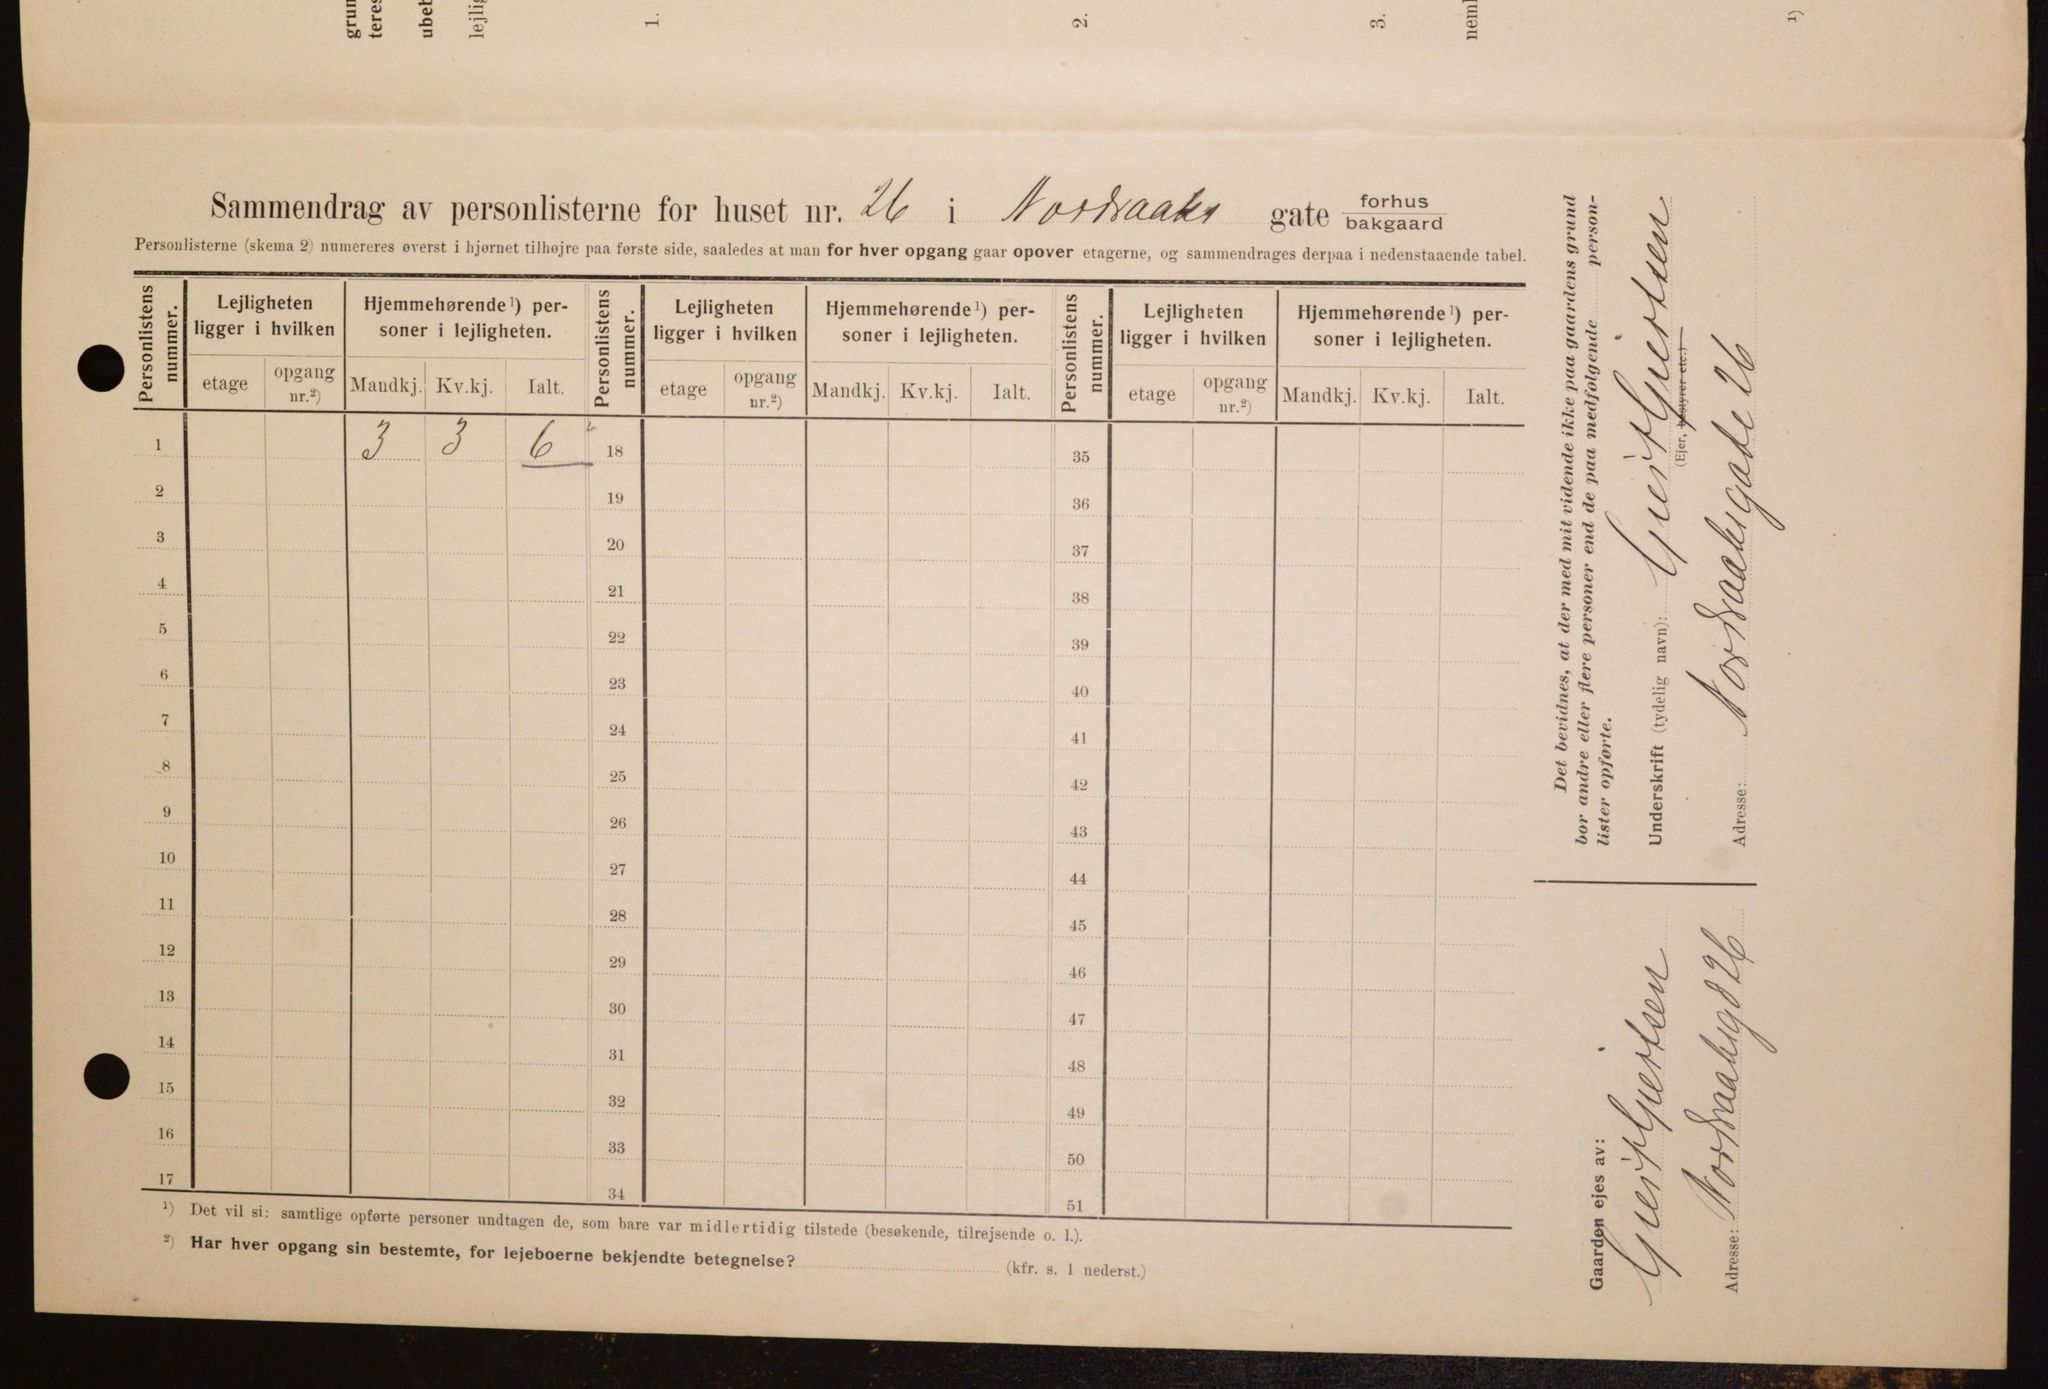 grun
teres
ubeb
lejlig
1.
2.
3.
neml
1)
Sammendrag av personlisterne for huset nr. 26 i Nordraaks gate forhus
bakgaard
Personlisterne (skema 2) numereres øverst i hjørnet tilhøjre paa første side, saaledes at man for hver opgang gaar opover etagerne, og sammendrages derpaa i nedenstaaende tabel.
Personlistens nummer. Lejligheten ligger i hvilken Hjemmehørende1) personer i lejligheten. Personlistens nummer. Lejligheten ligger i hvilken Hjemmehørende1) personer i lejligheten. Personlistens nummer. Lejligheten ligger i hvilken Hjemmehørende1) personer i lejligheten.
etage opgang nr.2) Mandkj. Kv.kj. Ialt. etage opgang nr.2) Mandkj. Kv.kj. Ialt. etage opgang nr.2) Mandkj. Kv.kj. Ialt.
1 3 3 6 18 35
2 19 36
3 20 37
4 21 38
5 22 39
6 23 40
7 24 41
8 25 42
9 26 43
10 27 44
11 28 45
12 29 46
13 30 47
14 31 48
15 32 49
16 33 50
17 34 51
1) Det vil si: samtlige opførte personer undtagen de, som bare var midlertidig tilstede (besøkende, tilrejsende o. l.).
2) Har hver opgang sin bestemte, for lejeboerne bekjendte betegnelse? (kfr. s. 1 nederst.)
Det bevidnes, at der med mit vidende ikke paa gaardens grund
bor andre eller flere personer end de paa medfølgende person-
lister opførte.
Underskrift (tydelig navn): Gjertsen
(Ejer, bestyrer etc.)
Adresse: Nordraaksgate 26
Gaarden ejes av:
Gjertsen
Adresse: Nordraaksgd 26